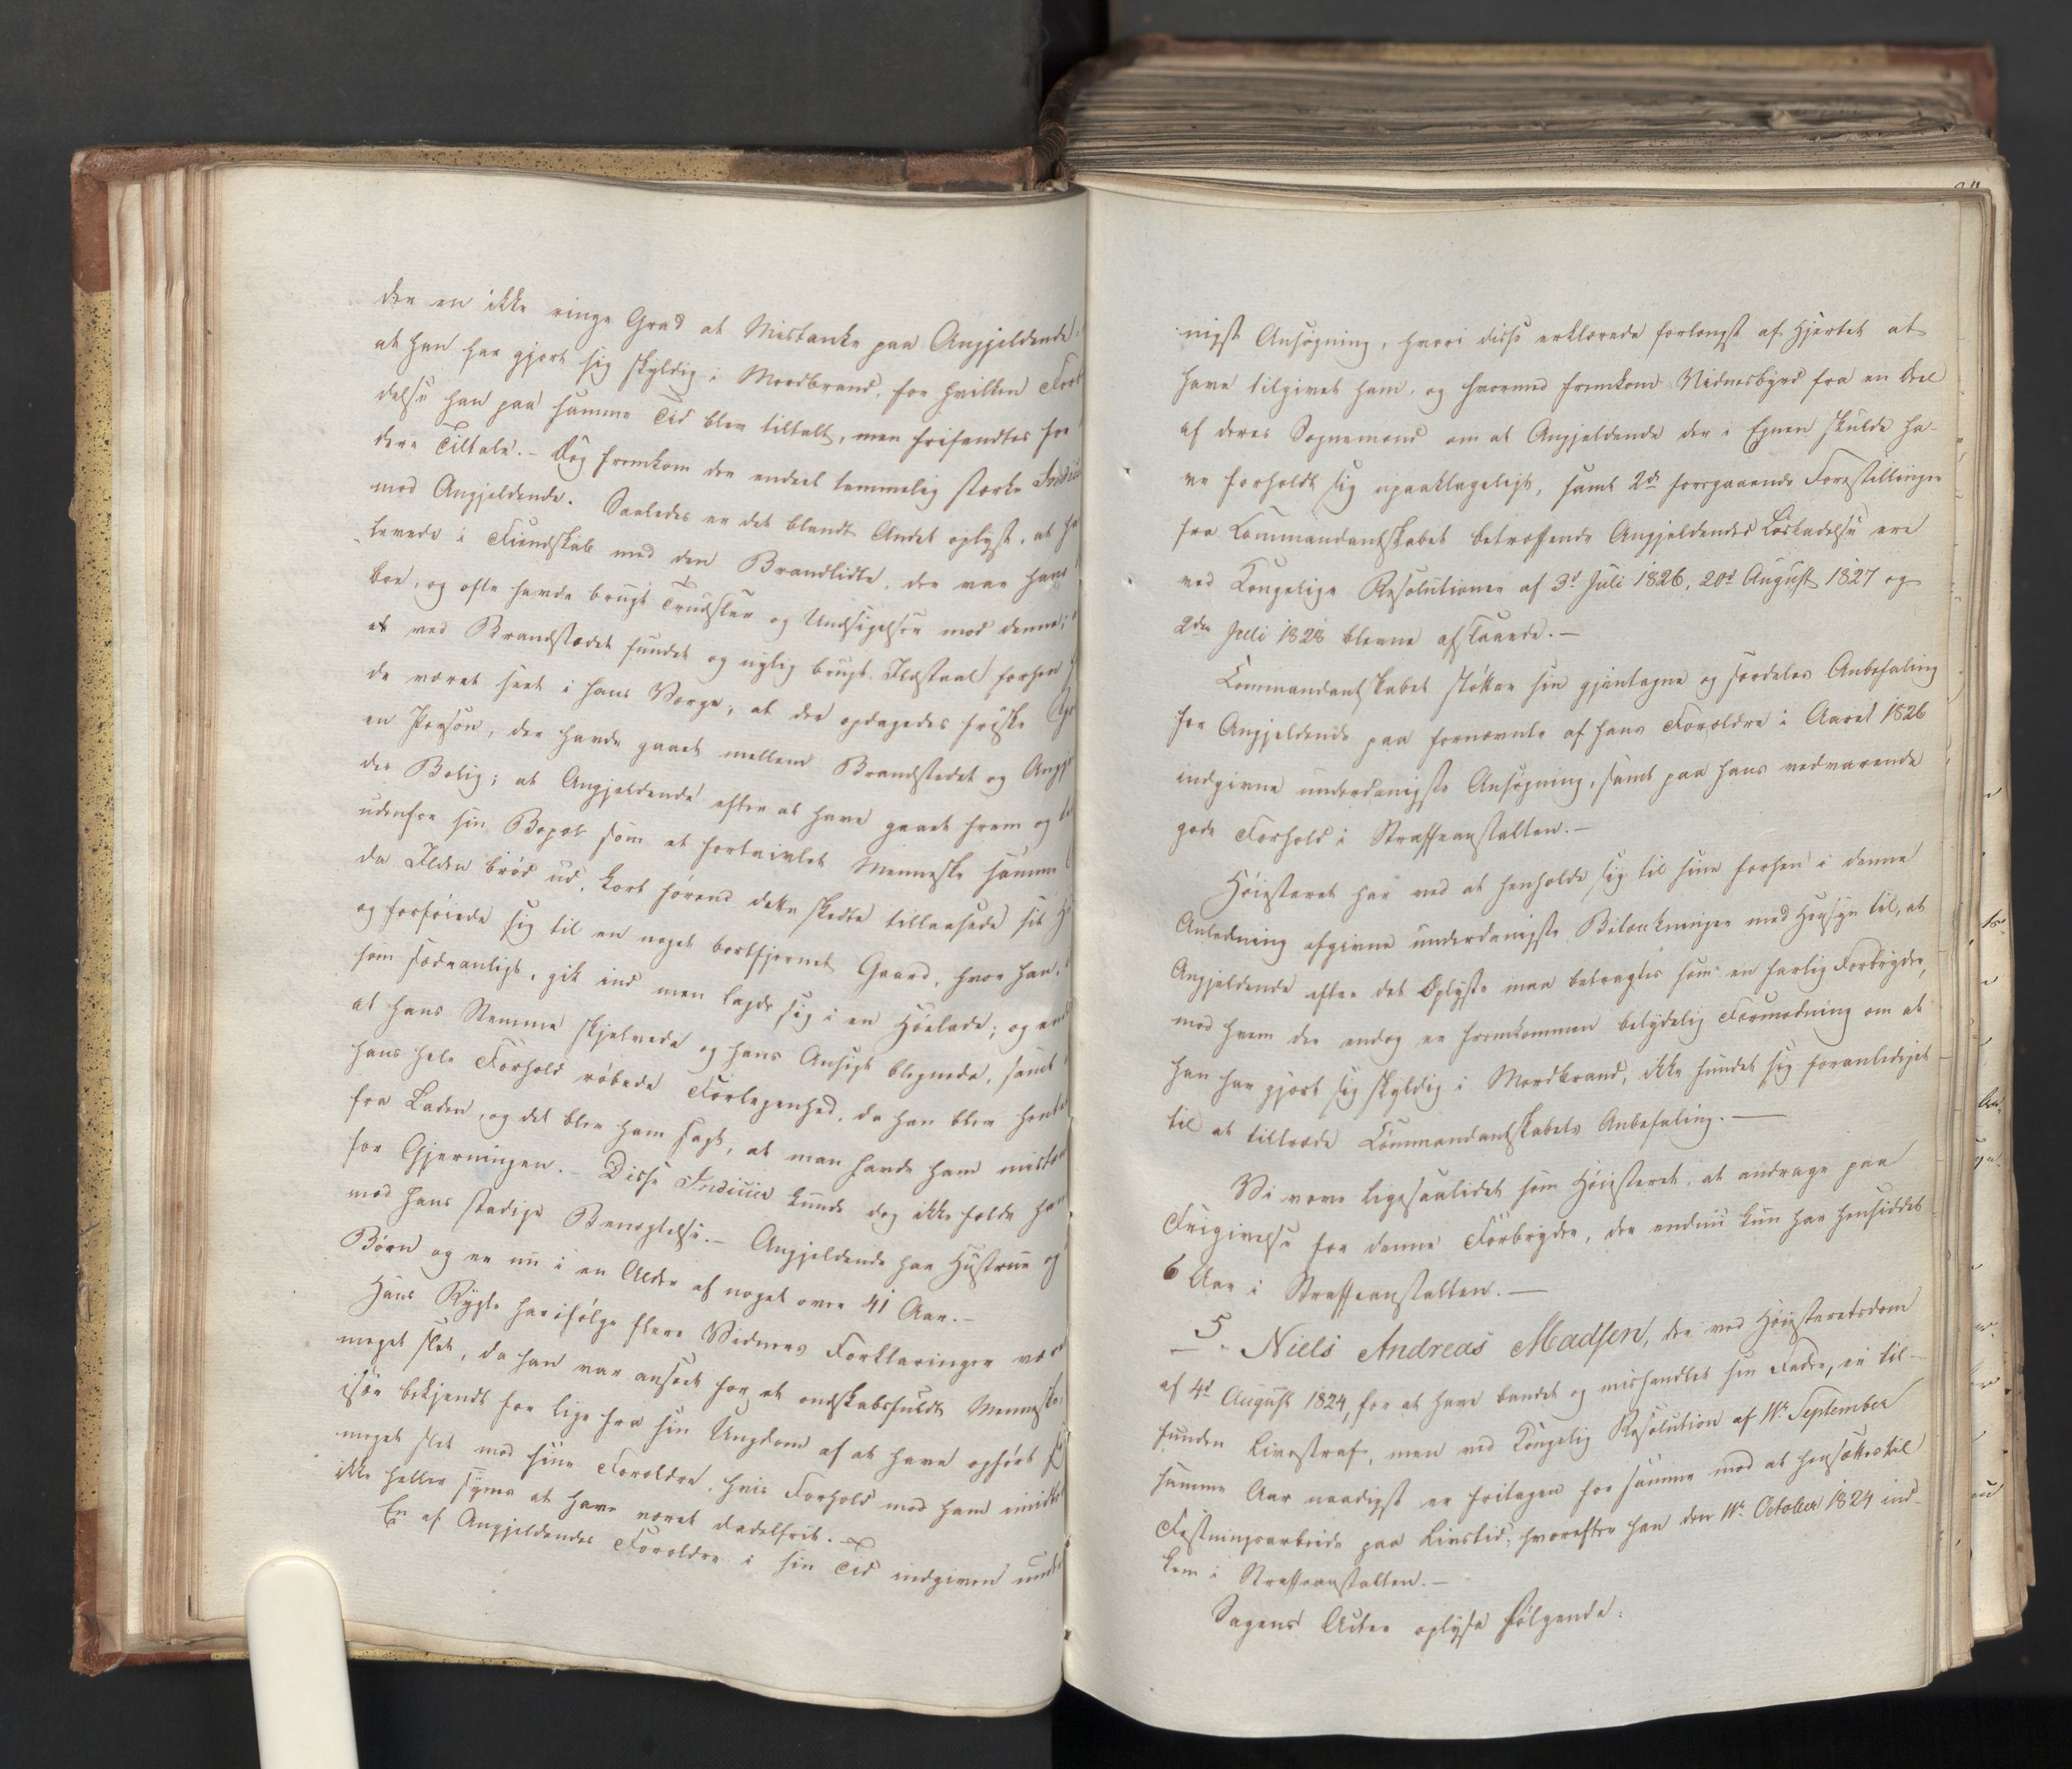 der en ikke ringe Grad at Mistanke paa Angjeldende,
at han har gjort sig skyldig i Mordbrand, for hvilken For
delse han paa samme Tid blev tiltalt, men frifandtes for
dens Tiltale. – Dog fremkom der endeel temmelig stærke Indici
mod Angjeldende. Saaledes er det blandt Andet oplyst, at ha
levede i Fiendskab med den Brandlidte, der var hans
boe, og ofte havde brugt Trudsler og Undsigelser mod denne;
et ved Brandstædet fundet og nylig brugt Ildstaal forhen
de været seet i hans Værge; at der opdagedes friske
en Person, der havde gaaet mellem Brandstedet og Angj
des Bolig; at Angjeldende efter at have gaaet frem og
udenfor sin Bopæl som et fortvivlet Menneske samme
da Ilden brød ud, kort førend dette skedte tillaasede sit
og forføiede sig til en noget bortfjernet Gaard, hvor han,
som sædvanligt, gik ind men lagde sig i en Høelade; og end
at hans Stemme skjelvede og hans Ansigt blegnede, samt
hans hele Forhold røbede Forlegenhed, da han blev hentet
fra Laden, og det blev ham sagt, at man havde ham mistæn
for Gjerningen. – Disse Indicier kunde dog ikke fælde ha
mod hans stadige Benægtelse. – Angjeldende har Hustrue og
Børn og er nu i en Alder af noget over 41 Aar. –
Hans Rygte har ifølge flere Vidners Forklaringer været
meget slet, da han var anseet for et ondskabsfuldt Menneske,
især bekjendt for lige fra sin Ungdom af at have opført
meget slet mod sine Forældre, hvis Forhold mod ham imidler
ikke heller synes at have været dadelfrit. –
En af Angjeldendes Forældre i sin Tid indgiven under
nigst Ansøgning, hvori disse erklærede forlængst af Hjertet at
have tilgivet ham, og hvormed fremkom Vidnesbyrd fra en Deel
af deres Sognemænd om at Angjeldende der i Egnen skulde ha-
ve forholdt sig upaaklageligt, samt 2de foregaaende Forestillinger
fra Commandantskabet betræffende Angjeldendes Løsladelse ere
ved Kongelige Resolutioner af 3d Juli 1826, 20d August 1827 og
2den Juli 1828 blevne afslaaede. –
Commandantskabet støtter sin gjentagne og særdeles Anbefaling
for Angjeldende paa fornævnte af hans Forældre i Aaret 1826
indgivne underdanigste Ansøgning, samt paa hans vedvarende
gode Forhold i Straffeanstalten. –
Høiesteret har ved at henholde sig til sine forhen i denne
Anledning afgivne underdanigste Betænkninger med Hensyn til, at
Angjeldende efter det Oplyste maa betragtes som en farlig Forbryder,
mod hvem der endog er fremkommen betydelig Formodning om at
han har gjort sig skyldig i Mordbrand, ikke fundet sig foranlediget
til at tiltræde Commandantskabets Anbefaling. –
Vi vove ligesaalidet som Høiesteret, at andrage paa
Frigivelse for denne Forbryder, der endnu kun har hensiddet
6 Aar i Straffeanstalten. –
5. Niels Andreas Madsen, der ved Høiesteretsdom
af 4d August 1824, for at have bandet og mishandlet sin Fader, er til-
funden Livsstraf, men ved Kongelig Resolution af 11te September
samme Aar naadigst er fritagen for samme mod at hensættes til
Fæstningsarbeide paa Livstid; hvorefter han den 11te October 1824 ind-
kom i Straffeanstalten. –
Sagens Acter oplyse følgende: